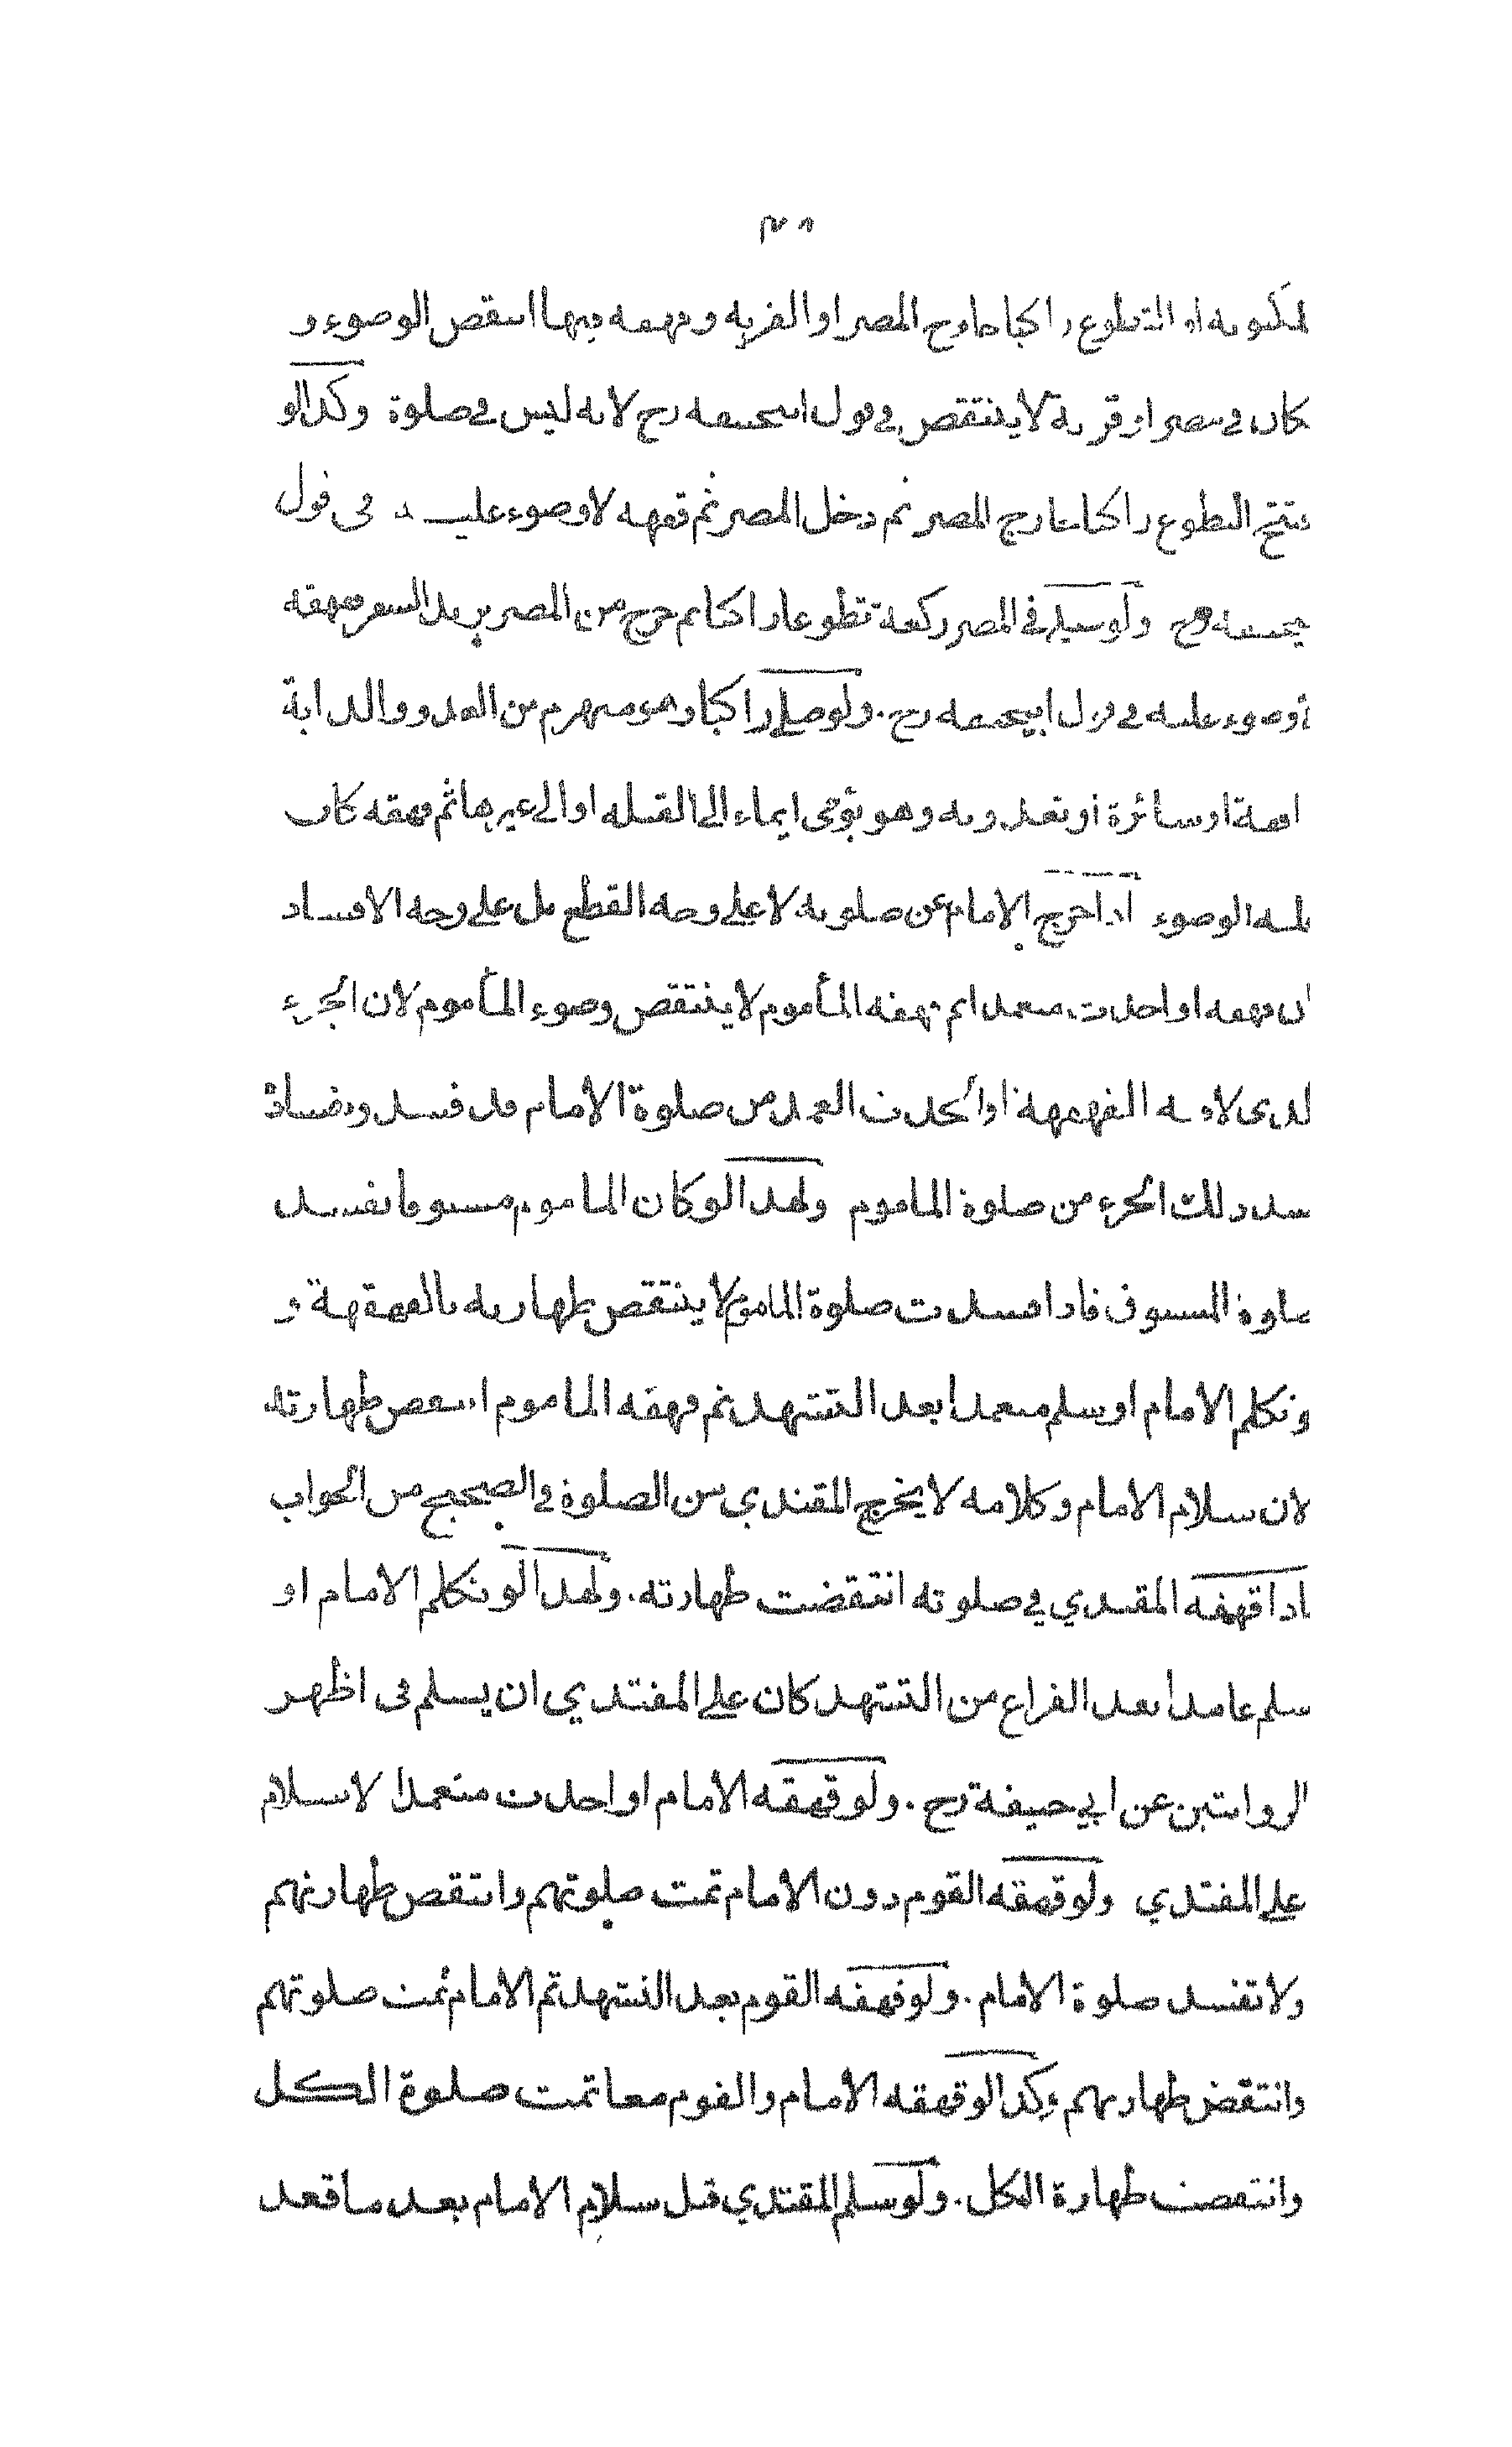 ٣٨
المكتوبة او التطوع راكبا خارج المصر او القرية وقهقه فيها انتقض الوضوء و
كان في مصر او قرية لا ينتقض في قول ابيحنيفه رح لانه ليس في صلوة وكذا لو
فتتح التطوع راكبا خارج المصر ثم دخل المصر ثم قهقه لا وضوء عليه في قول
بيحنيفه رح ولو صلى في المصر ركعة تطوعا راكبا ثم خرج من المصر يريد السفر وقهقه
لا وضوء عليه في قول ابيحنيفه رح. ولو صلى راكبا وهو منهزم من العدو والدابة
واقفة او سائرة او تعدو به وهو يومى ايماء الى القبله او الى غيرها ثم قهقه كان
عليه الوضوء اذا خرج الامام عن صلوته لا على وجه القطع بل على وجه الافساد
ان قهقه او احدث متعمدا ثم قهقه المأموم لا ينتقض وضوء المأموم لان الجزء
الذى لاقته القهقهة او الحدث العمد من صلوة الامام قد فسد وبفساده
فسد ذلك الجزء من صلوة الماموم ولهذا لو كان الماموم مسبوقا يفسد
صلوة المسبوق فاذا فسدت صلوة الماموم لا ينتقض طهارته بالقهقهة و
لو تكلم الامام او سلم متعمدا بعد التشهد ثم قهقه الماموم انتقض طهارته
لان سلام الامام وكلامه لا يخرج المقتدي من الصلوة في الصحيح من الجواب
فاذا قهقه المقتدي في صلوته انتقضت طهارته. ولهذا لو تكلم الامام او
سلم عامدا بعد الفراغ من التشهد كان على المقتدي ان يسلم فى اظهر
الروايتين عن ابي حنيفة رح. ولو قهقه الامام او احدث متعمدا لا سلام
على المقتدي ولو قهقه القوم دون الامام تمت صلوتهم وانتقض طهارتهم
ولا تفسد صلوة الامام. ولو قهقه القوم بعد التشهد ثم الامام تمت صلوتهم
وانتقض طهارتهم وكذا لو قهقه الامام والقوم معا تمت صلوة الكل
وانتقضت طهارة الكل. ولو سلم المقتدي قبل سلام الامام بعد ما قعد